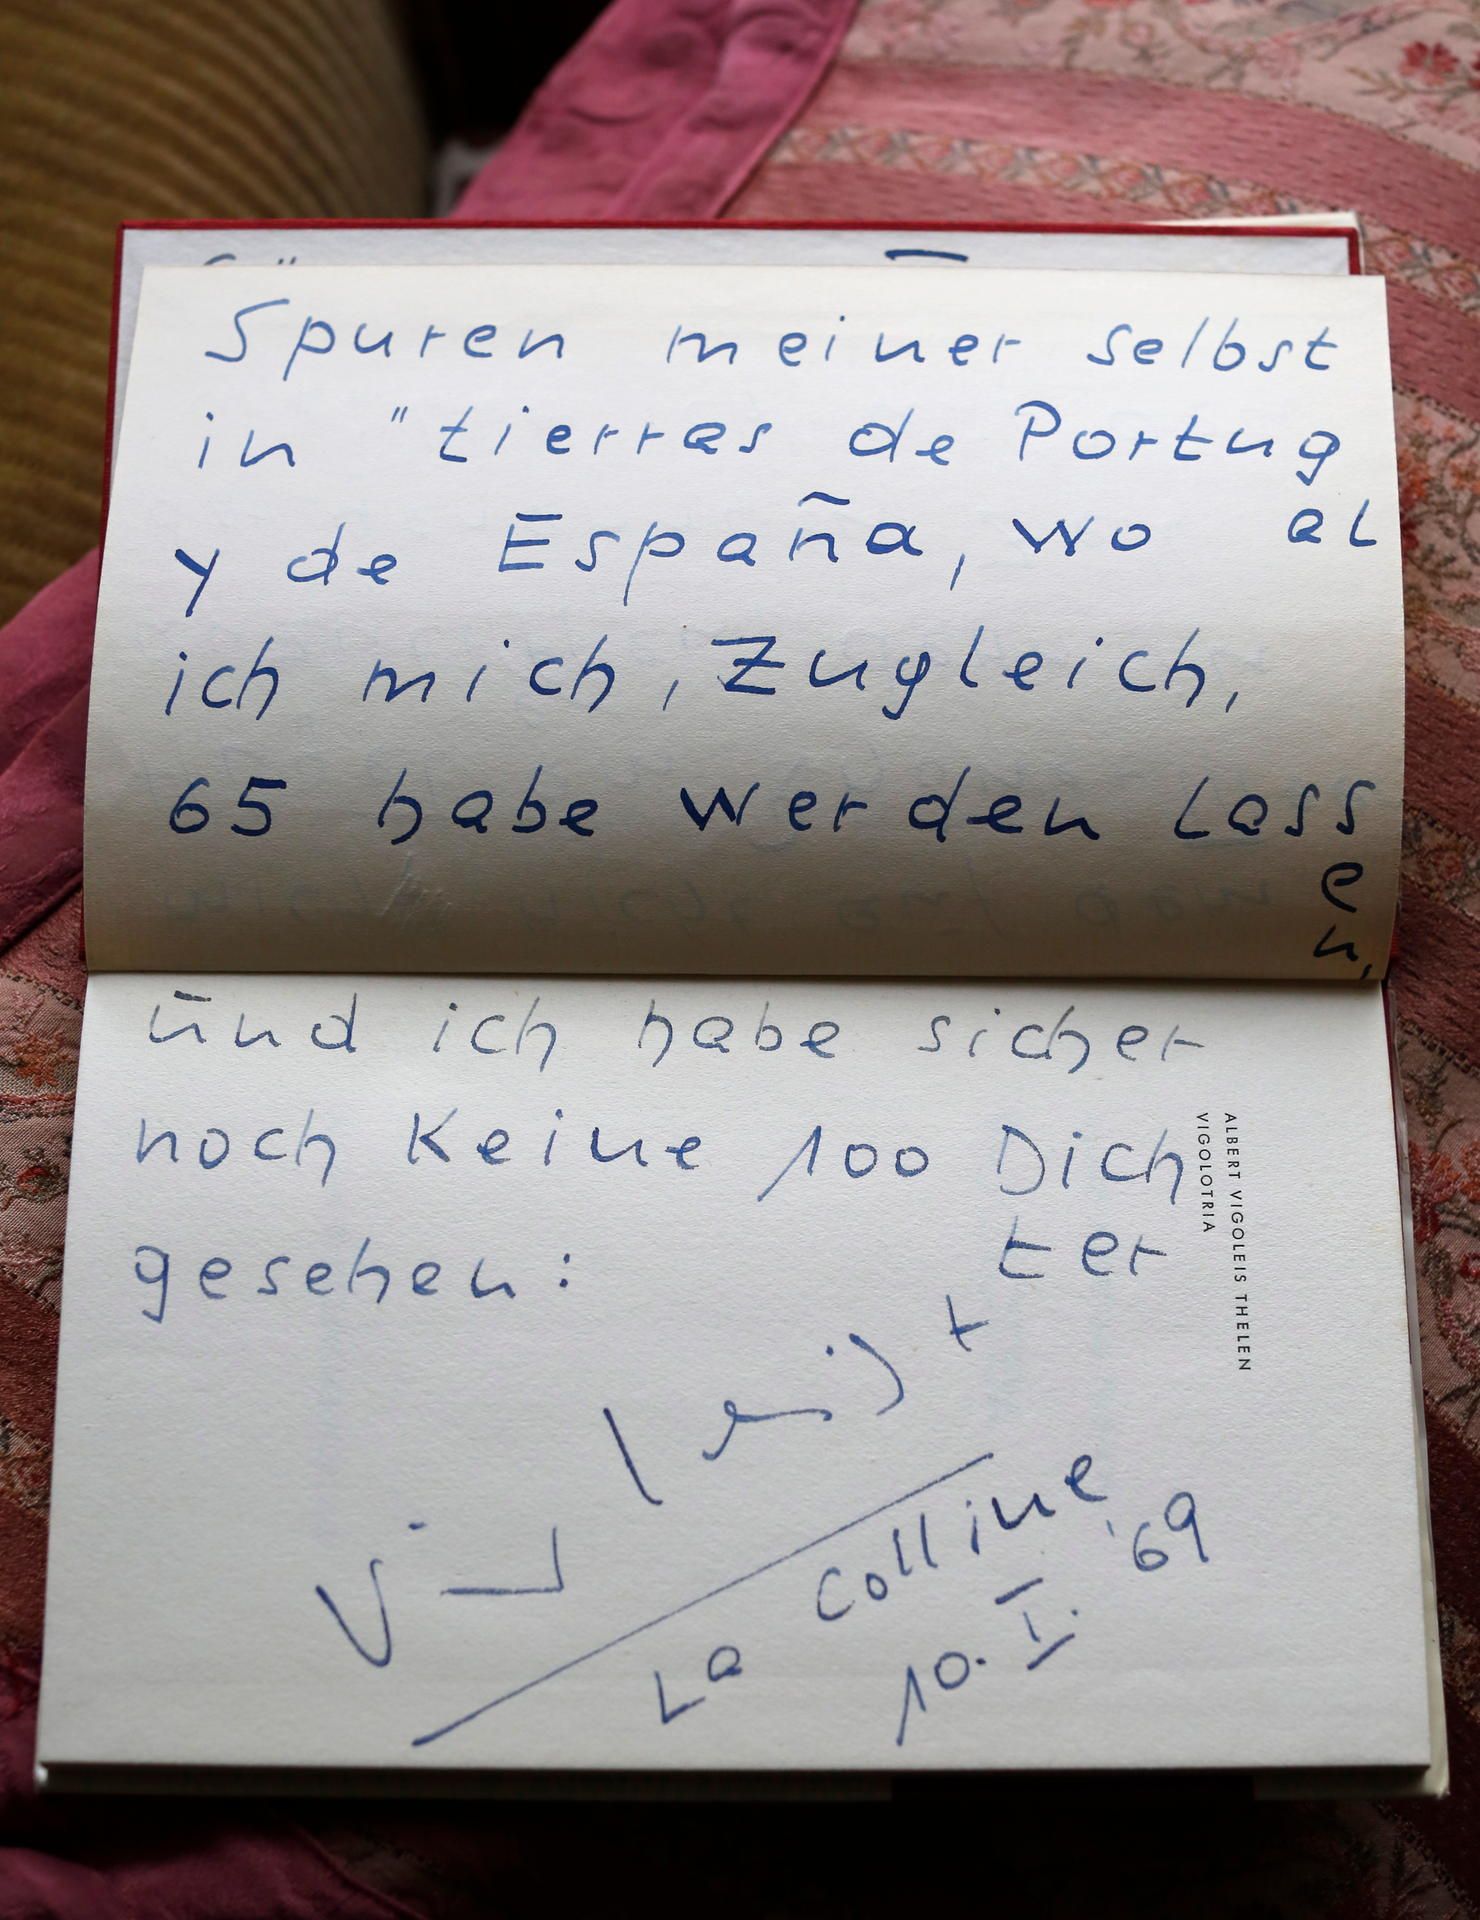 Spuren meiner selbst
in "tierras de Portug
al
y de España, wo
ich mich, zugleich,
65 habe werden lass
e
n,
und ich habe sicher
noch keine 100 Dich
ter
gesehen:
La Colline
10. I. '69
ALBERT VIGOLEIS THELEN
VIGOLOTRIA